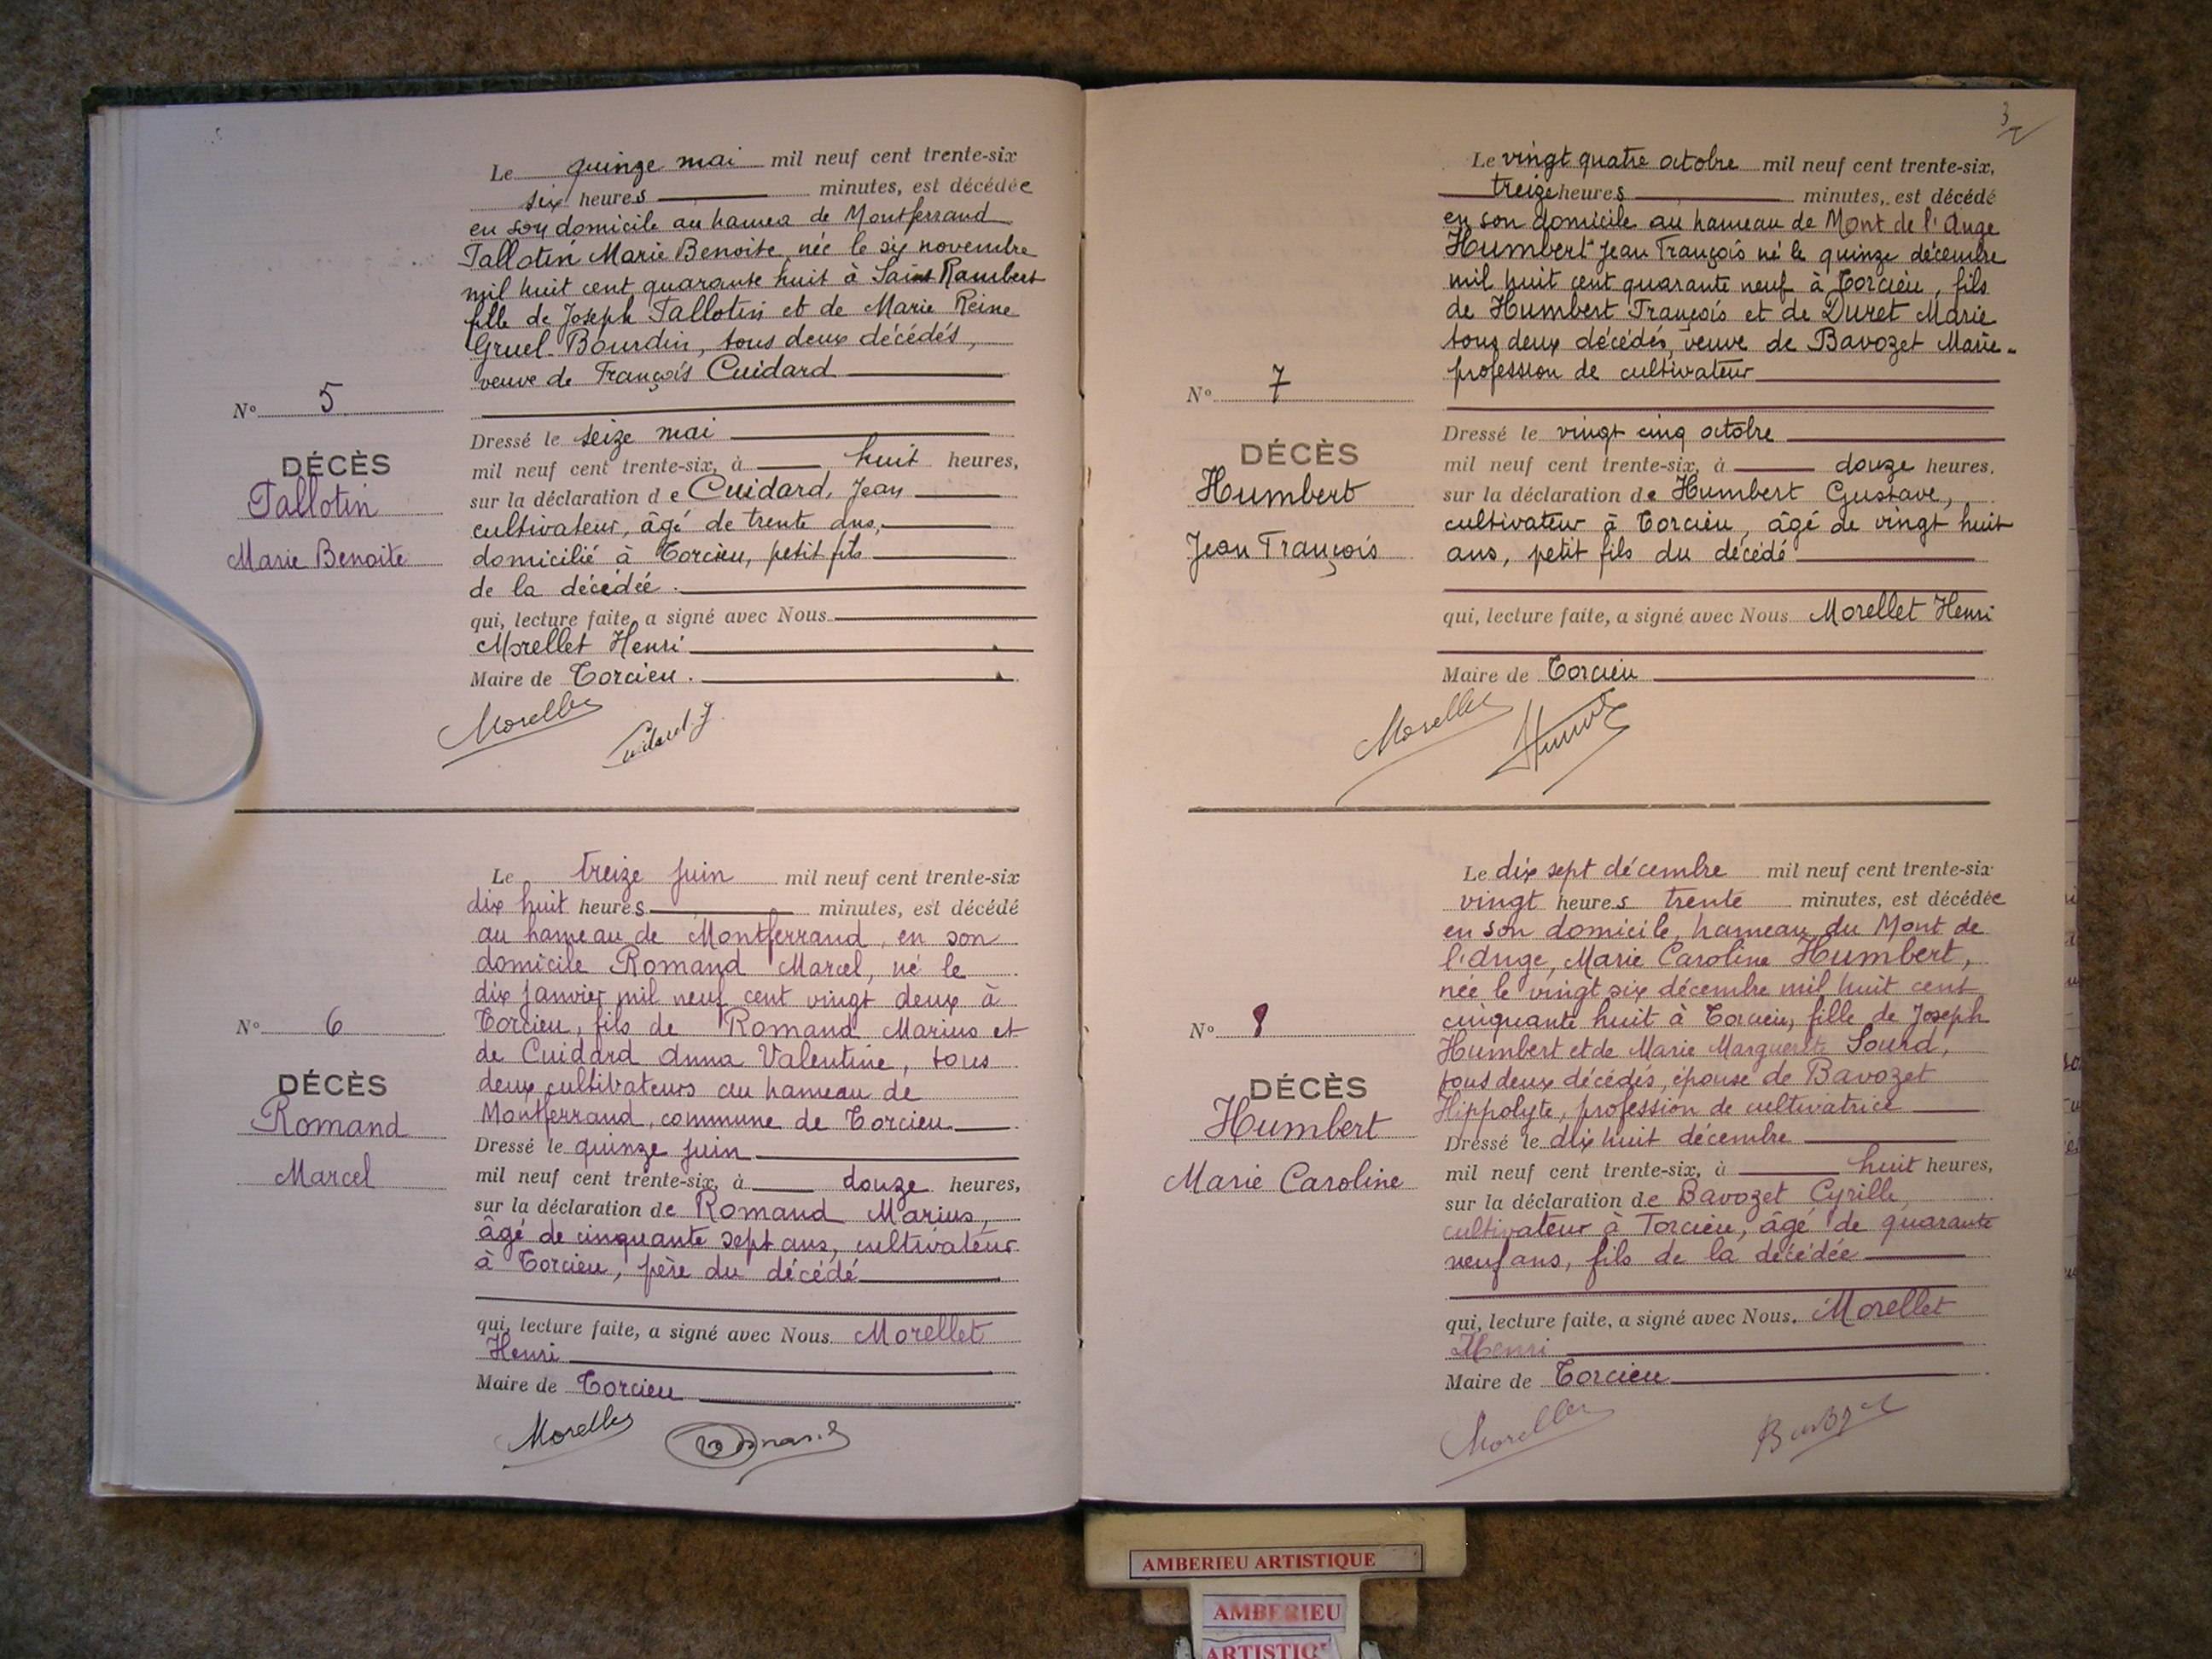 Le quinze mai mil neuf cent trente-six
six heures minutes, est décédée
en son domicile au hamea de Montferrand
Tallotin Marie Benoite, née le six novembre
mil huit cent quarante huit à Saint Rambert
fille de Joseph Tallotin et de Marie Reine
Gruel-Bourdin, tous deux décédés,
veuve de François Cuidard
N° 5
Dressé le seize mai
DÉCÈS
mil neuf cent trente-six, à huit heures,
Tallotin
sur la déclaration de Cuidard, Jean
cultivateur, âgé de trente ans,
Marie Benoite
domicilié à Torcieu, petit fils
de la décédée.
qui, lecture faite, a signé avec Nous
Morellet Henri
Maire de Torcieu.
Morellet
Cuidard J
Le treize juin mil neuf cent trente-six
dix huit heures minutes, est décédé
au hameau de Montferrand, en son
domicile Romand Marcel, né le
dix janvier mil neuf cent vingt deux à
N° 6
Torcieu, fils de Romand Marius et
de Cuidard Anna Valentine, tous
DÉCÈS
deux cultivateurs au hameau de
Romand
Montferrand, commune de Torcieu
Dressé le quinze juin
Marcel
mil neuf cent trente-six, à douze heures,
sur la déclaration de Romand Marius,
âgé de cinquante sept ans, cultivateur
à Torcieu, père du décédé
qui, lecture faite, a signé avec Nous Morellet
Henri
Maire de Torcieu
Morellet
Romand
3
Le vingt quatre octobre mil neuf cent trente-six,
treize heures minutes, est décédé
en son domicile au hameau de Mont de l'Ange
Humbert Jean François né le quinze décembre
mil huit cent quarante neuf à Torcieu, fils
de Humbert François et de Duret Marie
tous deux décédés, veuve de Bavozet Marie-
profession de cultivateur
N° 7
Dressé le vingt cinq octobre
DÉCÈS
mil neuf cent trente-six, à douze heures.
Humbert
sur la déclaration de Humbert Gustave,
cultivateur à Torcieu, âgé de vingt huit
Jean François
ans, petit fils du décédé
qui, lecture faite, a signé avec Nous Morellet Henri
Maire de Torcieu
Morellet
Le dix sept décembre mil neuf cent trente-six
vingt heures trente minutes, est décédée
en son domicile, hameau du Mont de
l'Ange, Marie Caroline Humbert,
née le vingt six décembre mil huit cent
N° 8
cinquante huit à Torcieu, fille de Joseph
Humbert et de Marie Marguerite Sourd,
tous deux décédés, épouse de Bavozet
DÉCÈS
Hippolyte, profession de cultivatrice
Humbert
Dressé le dix huit décembre
mil neuf cent trente-six, à huit heures,
Marie Caroline
sur la déclaration de Bavozet Cyrille,
cultivateur à Torcieu, âgé de quarante
neuf ans, fils de la décédée
qui, lecture faite, a signé avec Nous. Morellet
Henri
Maire de Torcieu
Morellet
Bavozet
AMBERIEU ARTISTIQUE
AMBERIEU
ARTISTIQ